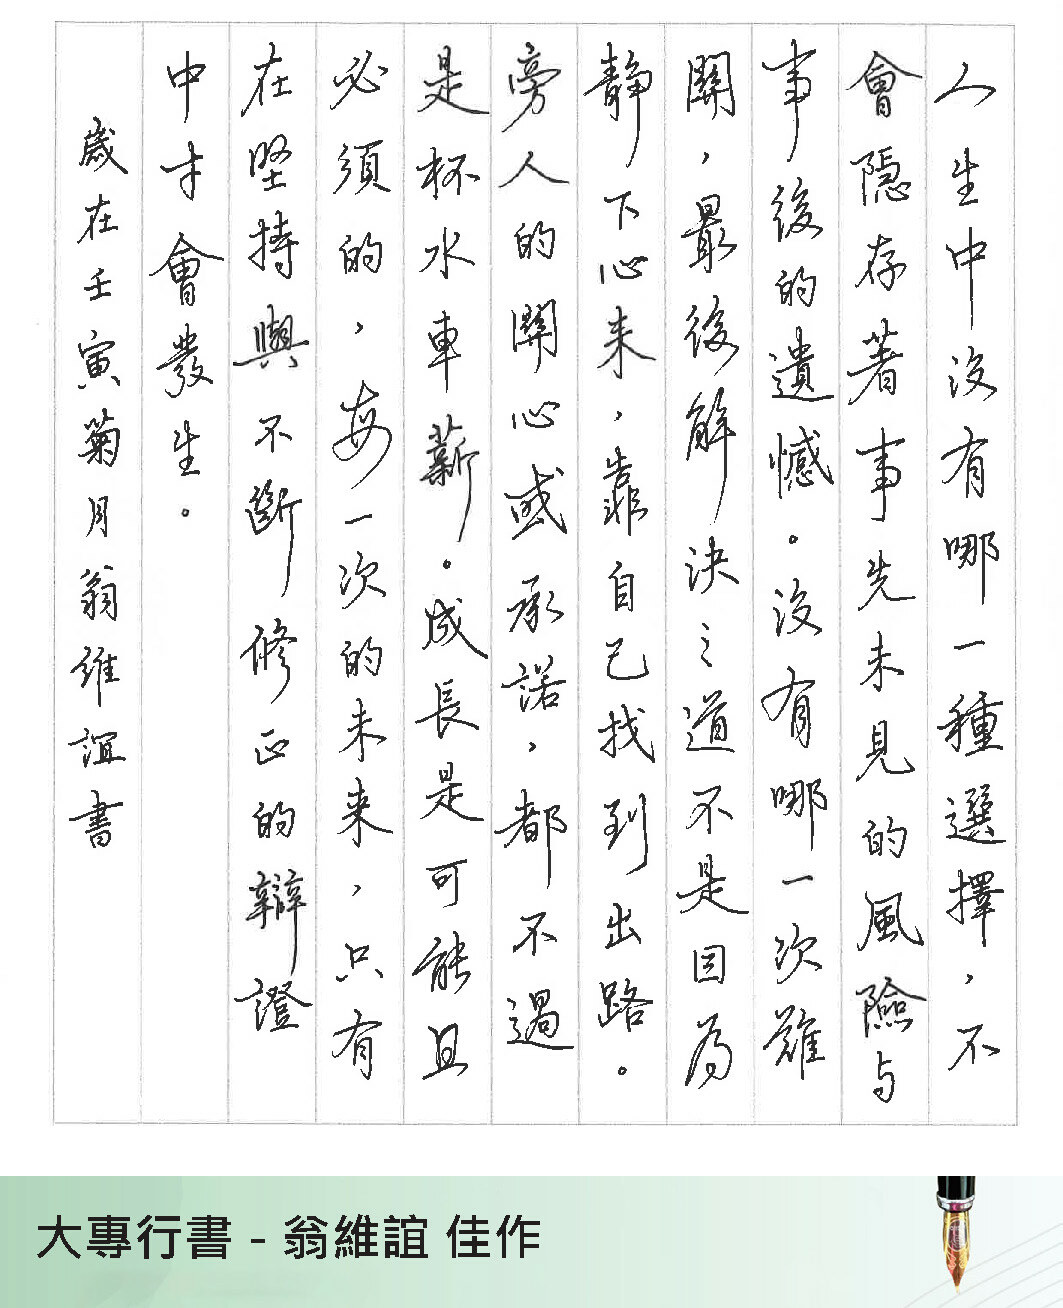 人生中沒有哪一種選擇，不
會隱存著事先未見的風險与
事後的遺憾。沒有哪一次難
關，最後解決之道不是因為
靜下心來，靠自己找到出路。
旁人的關心或承諾，都不過
是杯水車薪。成長是可能且
必須的，每一次的未來，只有
在堅持與不斷修正的辯證
中才會發生。
歲在壬寅菊月翁維誼書
大專行書 - 翁維誼 佳作